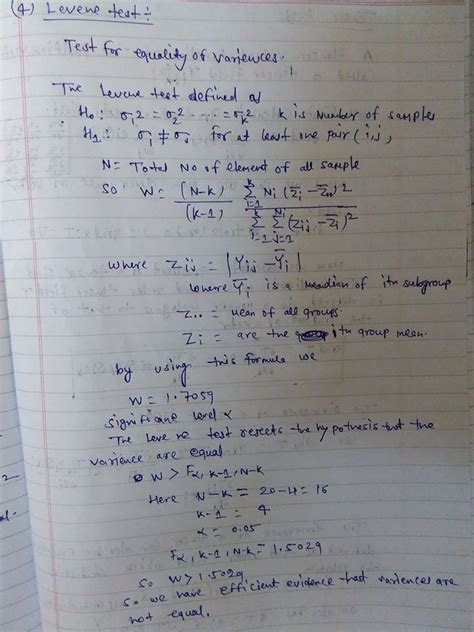 (4) Levene test :-
Test for equality of variences.
The Levene test defined as
H₀ : σ₁² = σ₂² ... = σₖ² k is number of samples
H₁ : σᵢ ≠ σⱼ for at least one pair (i,j)
N = Total No of element of all sample
So W = (N-k)/(k-1) Σᵢ₌₁ᵏ Nᵢ (Z̄ᵢ - Z̄..)² / Σᵢ₌₁ᵏ Σⱼ₌₁ᴺⁱ (Zᵢⱼ - Z̄ᵢ)²
where Zᵢⱼ = |Yᵢⱼ - Ȳᵢ|
where Ȳᵢ is a meadian of ith subgroup
Z.. = mean of all groups.
Zᵢ = are the ith group mean.
by using this formula we
W = 1.7059
significane level α
The Leve ne test rescets the hypothesis that the
varience are equal
W > Fα, k-1, N-k
Here N-k = 20-4 = 16
k-1 = 4
α = 0.05
Fα, k-1, N-k = 1.5029
So W > 1.5029
So we have efficient evidence that variences are
not equal.
2